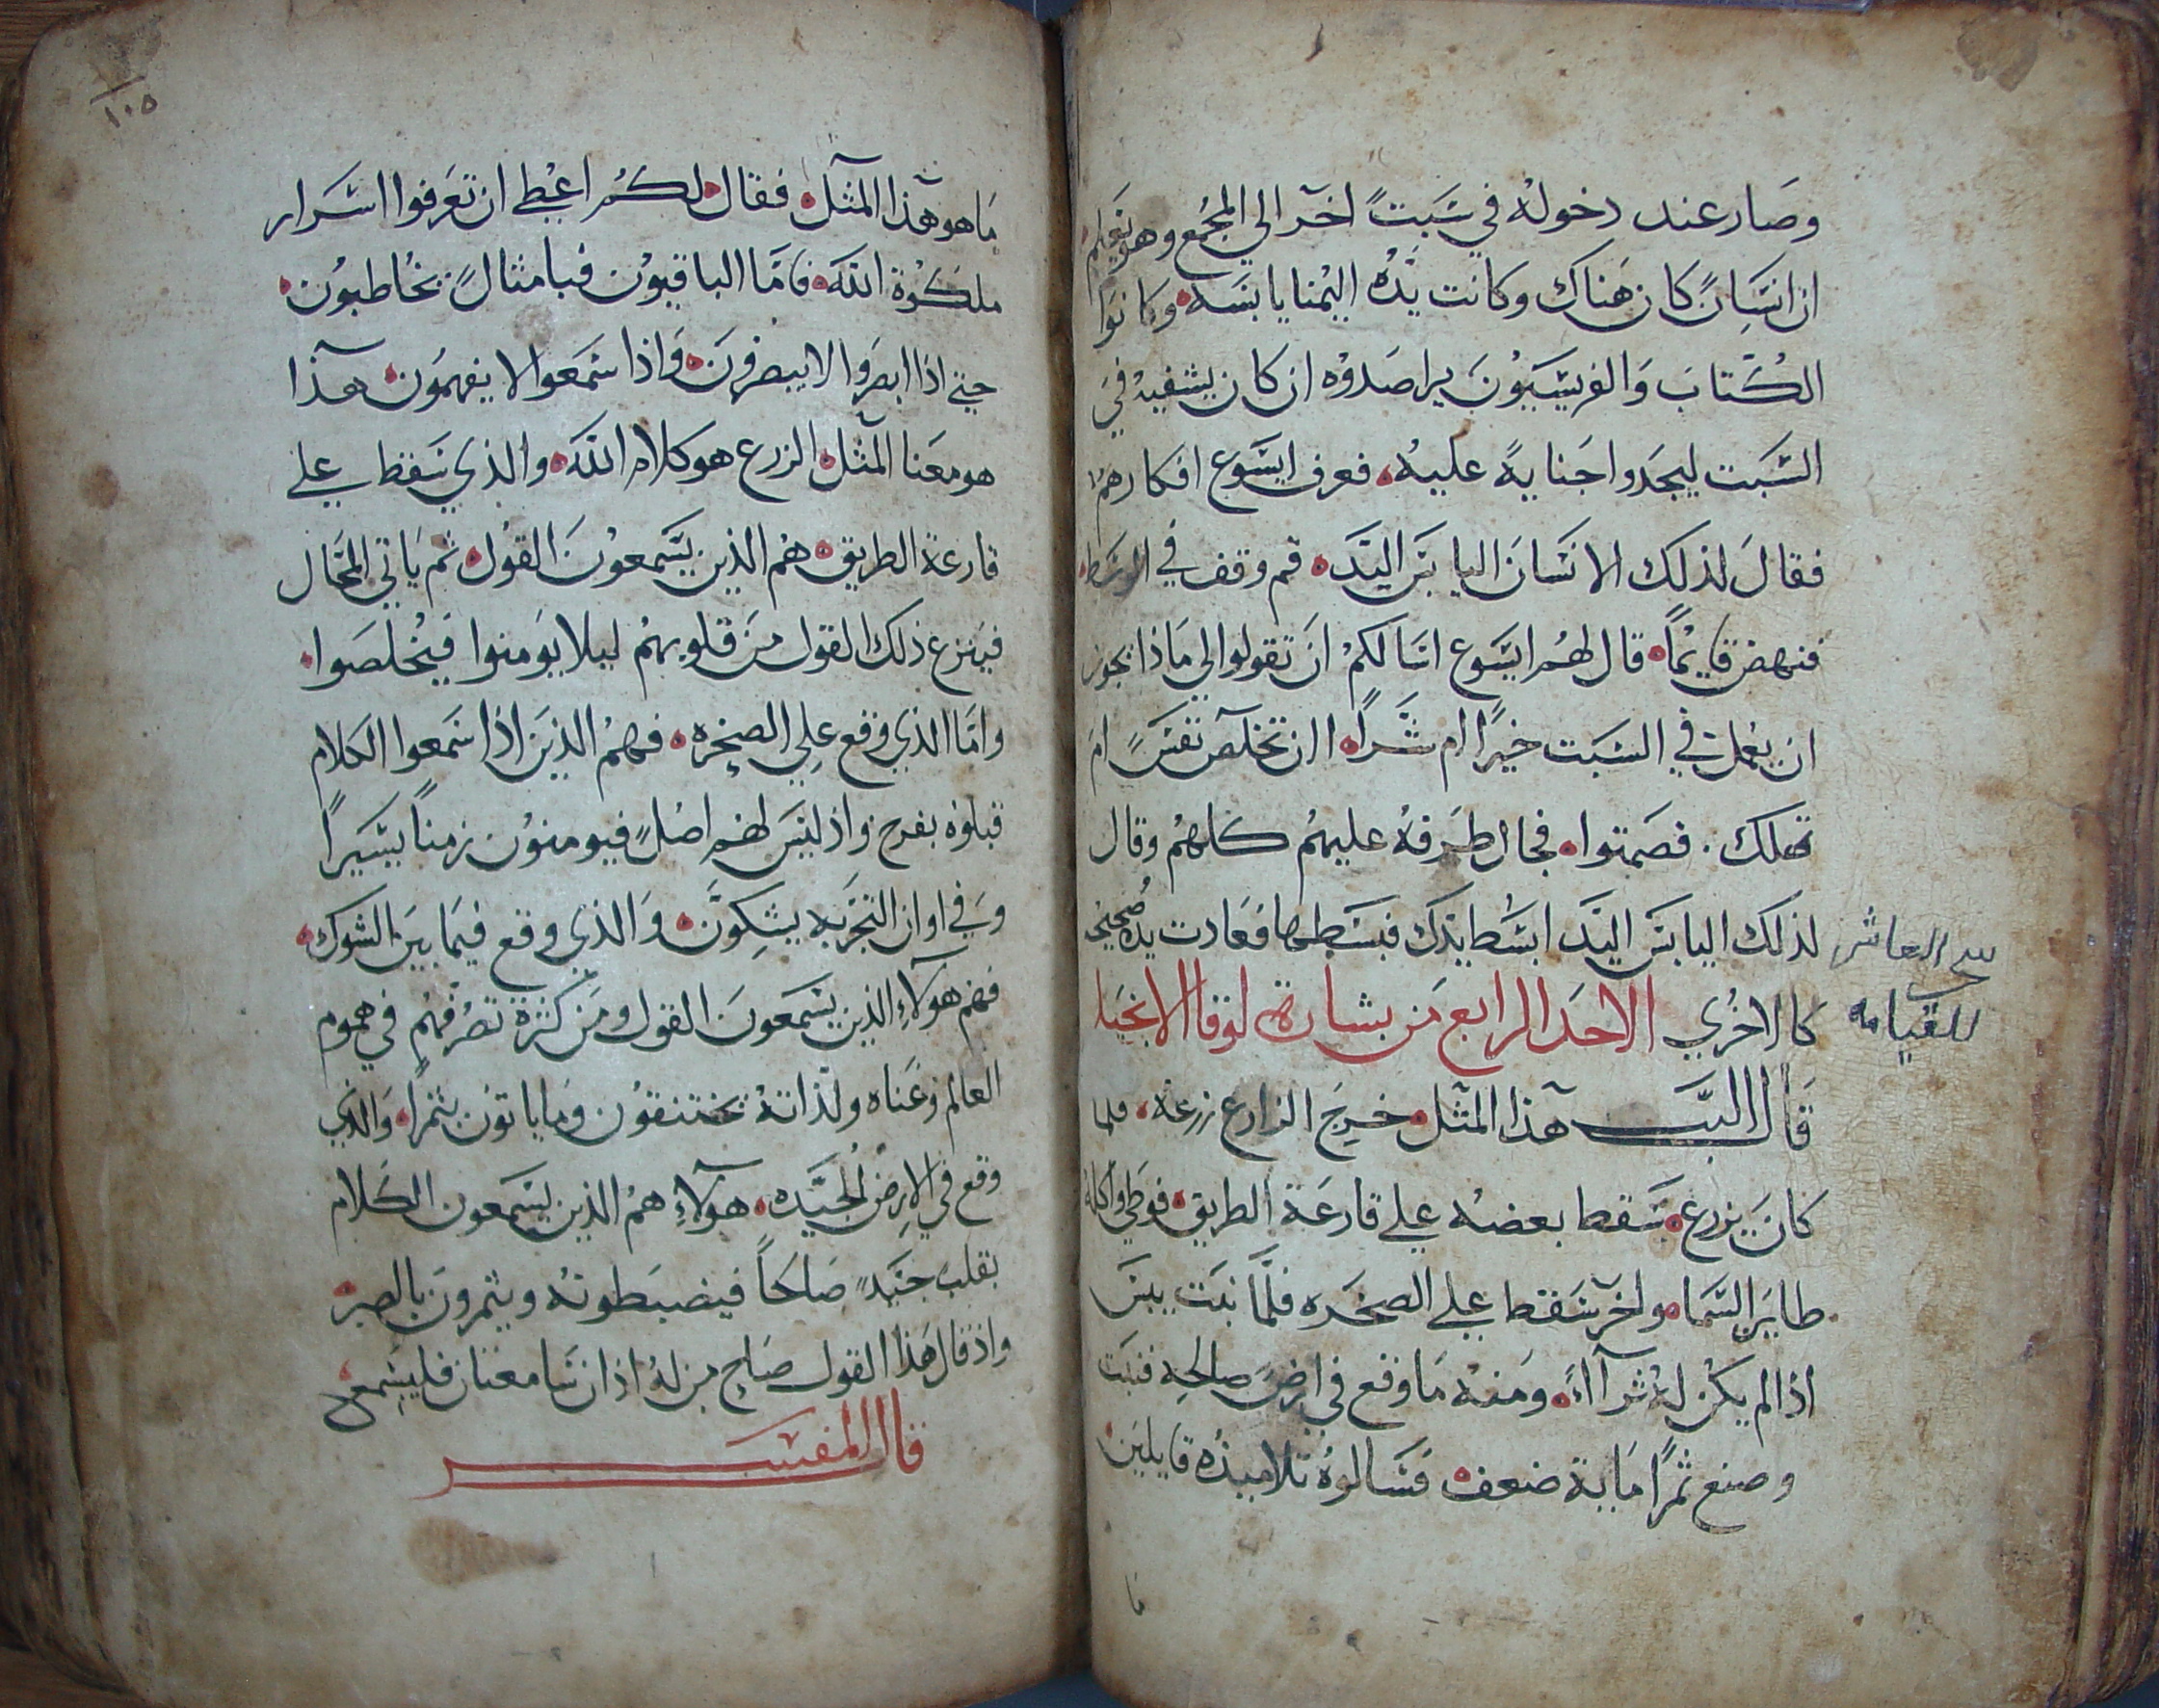 وصَار عند دخوله في سَبتٍ اخر الي المجمع وهو يعَلم
ان انسَانٍ كان هَناك وكانت يَدُه اليُمنا يابسَه وكانوا
الكُتابَ وَالفريسَيُونَ يراصَدوُه ان كان يشفيهْ في
السَبَت ليجَدوا جَنايةً عليهْ فعرف ايسَوع افكارهمْ
فقالَ لذلك الانسَانَ اليابسَ اليَد قم وقف في الوسَط
فنهضَ قايمًا قال لهُم ايسَوع اسَالكمْ انَ تقولوا لي مَاذا يجوز
ان يعمل في السَبَت خيرًا ام شَراً ان تخلصَ نفسٍَ امَ
تهلك فصَمتوا فجال طَرفهُ عليهمُ كلهمُ وقال
لذلك اليابسَ اليَد ابسَط يدَك فبسَطها فعَادت يَده صُحيحه
سح العاشر
كالاخرُي الاحَد الرابع مَن بشارة لوقا الانجيلي
للقيامه
قَال الربَ هذا المثَل خرجَ الزارع زرعَهْ فلما
كانَ يزرع سَقط بعضهْ علي قارعَة الطريق فوطي واكله
طايرَ السَما واخر سَقط علي الصخرَه فلمَّا نبَت يبسَ
اذا لم يكنْ لهْ ثرااً ومَنهْ مَا وقع في ارضٍ صَالحه فنبَت
وصنع ثمرًا مَاية ضعف فسَالوُه تلاميذُه قايلينَ
ما
١٠٥
مَا هو هذا المثَل فقال لكُم اعِطي ان تعَرفوا اسَرار
ملكوُة الله فامَّا الباقيوُن فبامثالٍ نخُاطبوُن
حتي اذا ابصَروا لا يبصرونَ وَاذا سَمعَوا لا يفهمَون هذا
هو معَنا المثَل الزرع هو كلام اللهَ والذي سَقط علي
قارعة الطريق همُ الذين يسَمعوُنَ القول ثم يَاتي المحَال
فينزع ذلك القول منَ قلوبهمُ ليلا يَومنوا فَيخُلصَوا
وامَا الذي وقع علي الصخِره فهمُ الذينَ اذا سَمعوا الكلام
قبلوُه بفرح واذ ليسَ لهمَ اصُلٍ فيومنوُن زمناً يسَيراً
وَفي اوان التجَربه يشكِونَ وَالذي وقع فيمَا بينَ الشوك
فهم هولاءِ الذين يسَمعونَ القول ومَن كثرة تصرُفهمُ في هموم
العالم وغَناه ولذاتهُ تختنقوُن ومَا ياتون بثمرا وَالذي
وقع في الارِض الجيَده هولاءِ همُ الذين يسَمعون الكَلام
بقلب جيَدٍ صَالحاً فيضبطَونهُ ويثمرونَ بالصبر
واذ قال هَذا القول صَاح من لهُ اذان سَامعتان فليسَمع
قال المفسَر